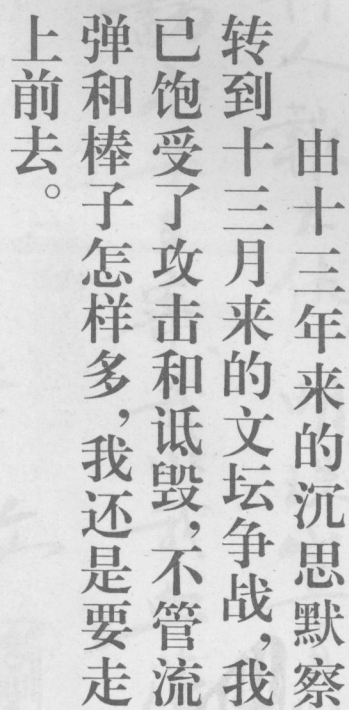 由十三年来的沉思默察
转到十三月来的文坛争战，我
已饱受了攻击和诋毁，不管流
弹和棒子怎样多，我还是要走
上前去。